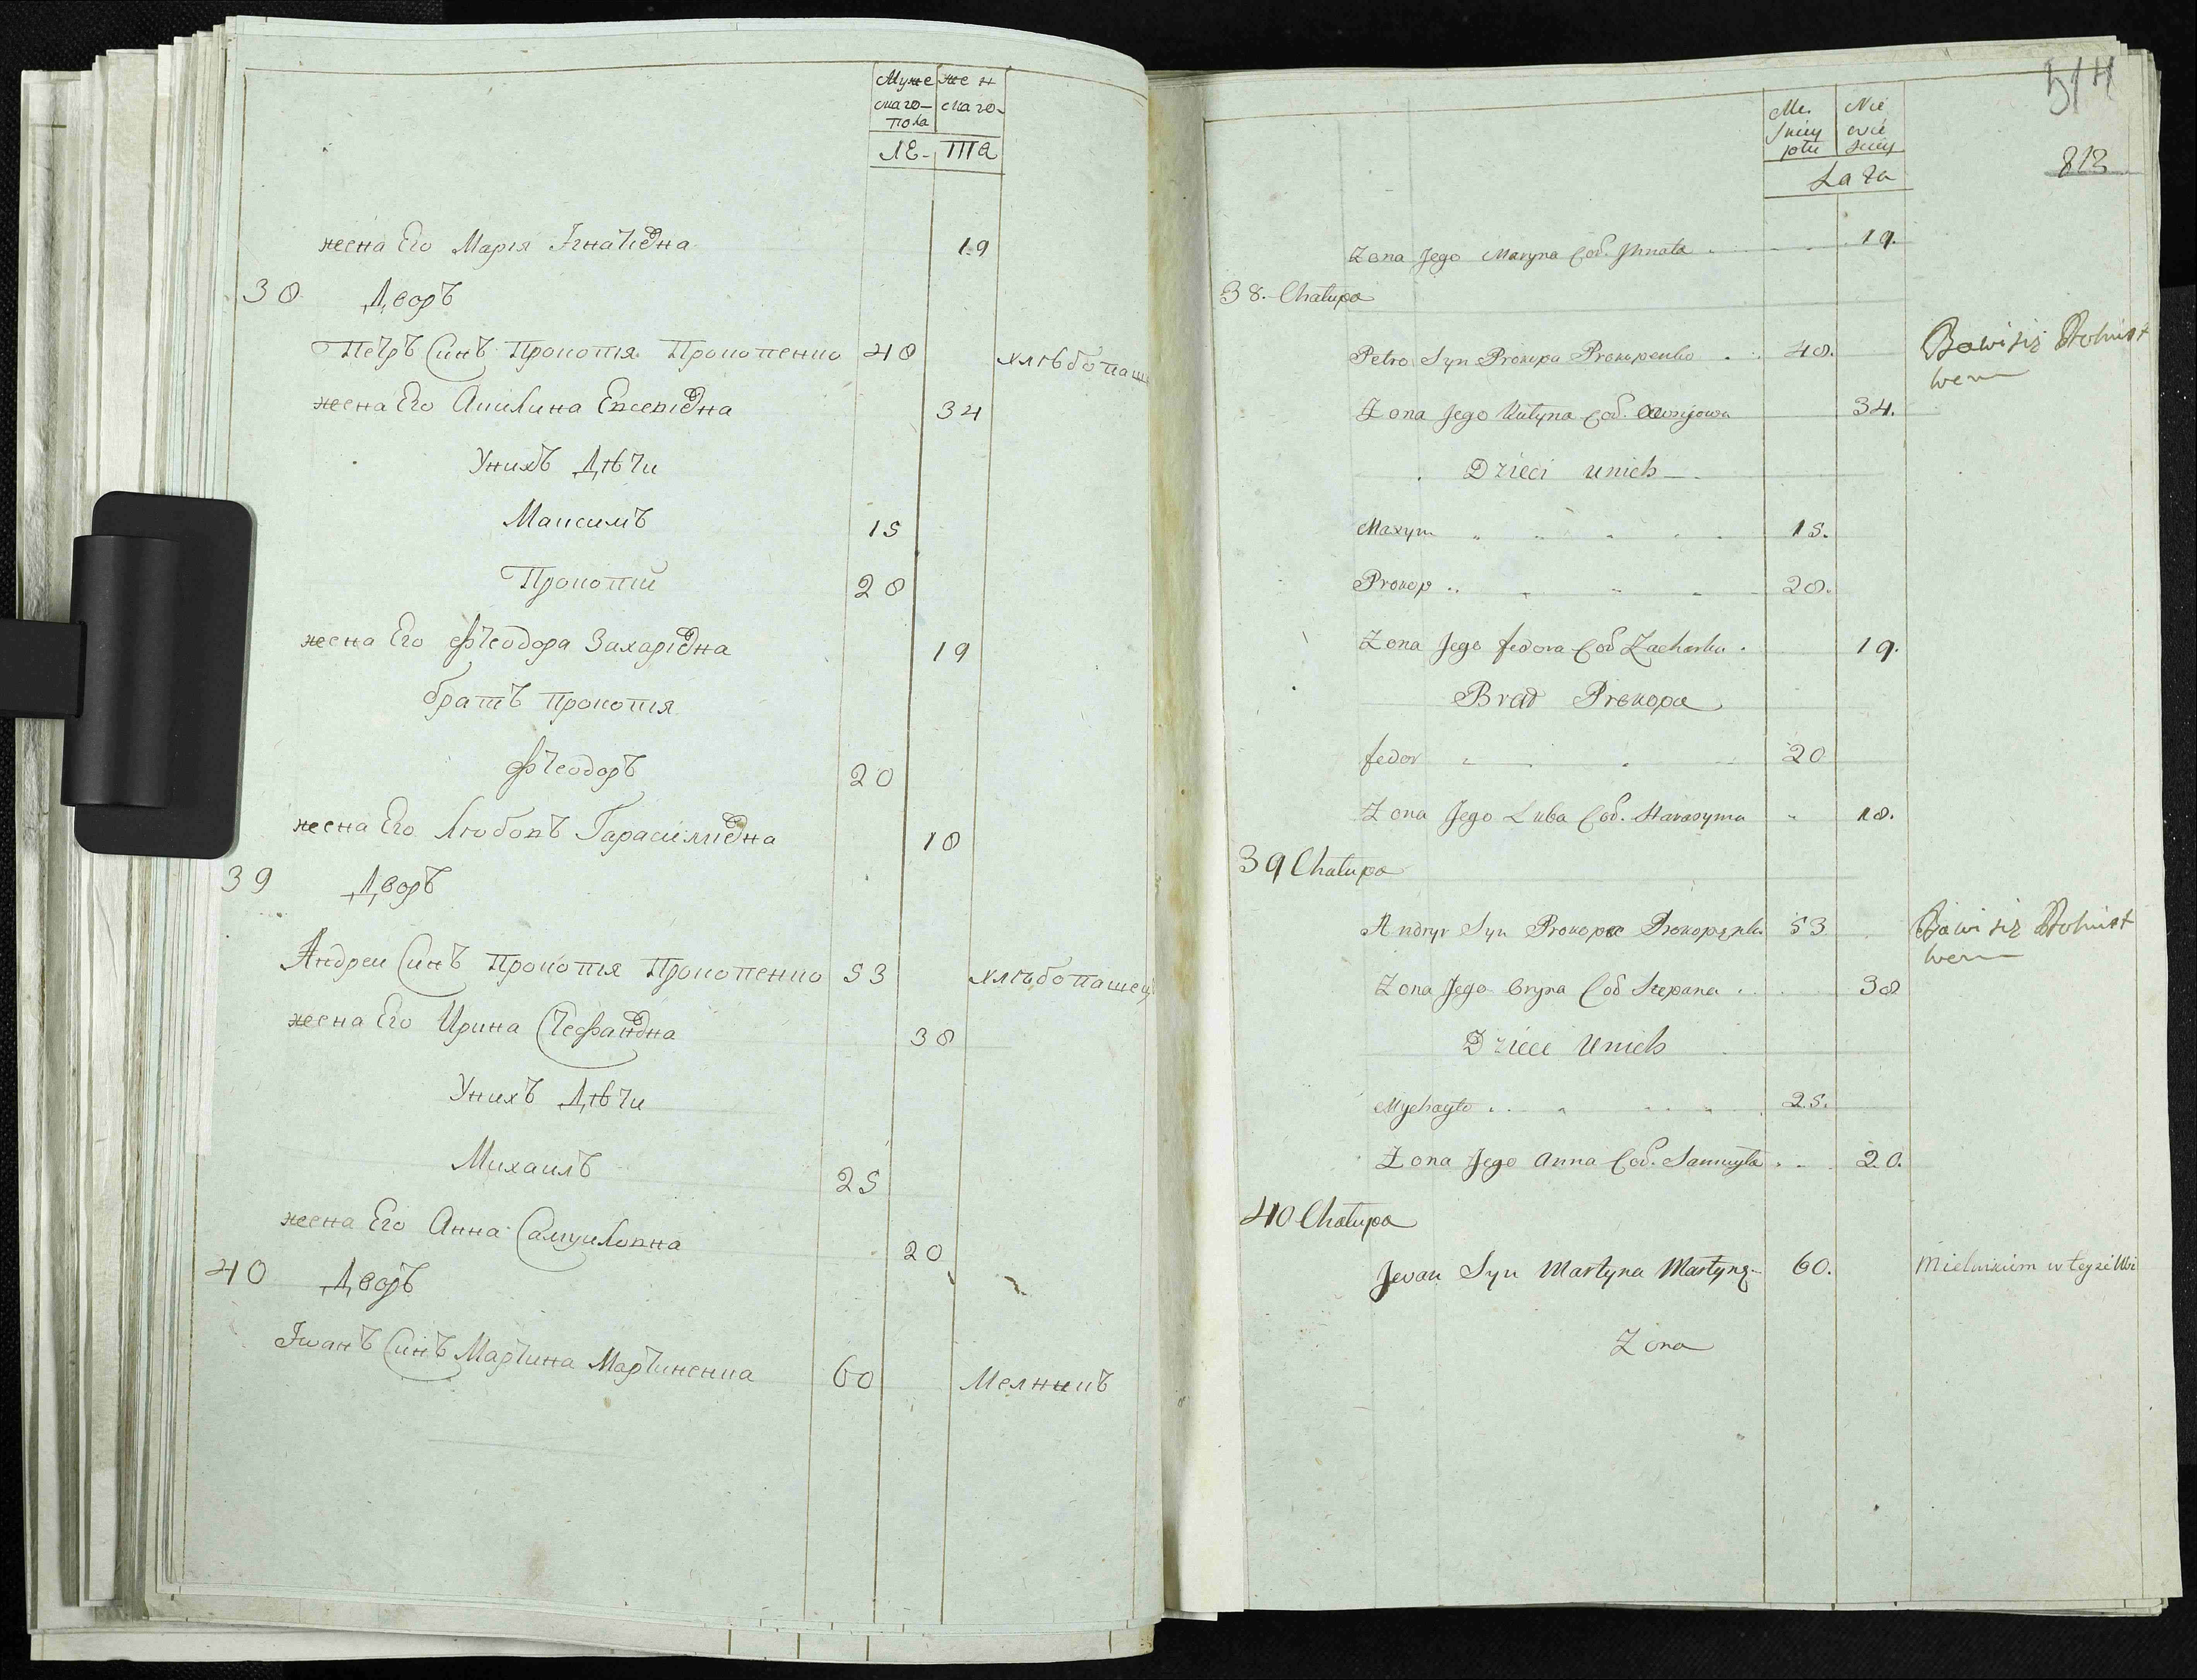 Муже жен
скаго скаго
пола
лѣ- та
жена Его Марія Ігнатіевна 19
38 Дворъ
Петръ Синъ Прокопія Прокопенко 48 хлѣбопаш
жена Его Акилина Евсевіевна 34
Унихъ Дѣти
Максимъ 15
Прокопій 28
жена Его Феодора Захаріевна 19
братъ Прокопія
Феодоръ 20
жена Его Любовъ Гарасимовна 18
39 Дворъ
Андреи Синъ Прокопія Прокопенко 53 хлѣбопашец
жена Его Ирина Стефановна 38
Унихъ Дѣти
Михаилъ 25
жена Его Анна Самуиловна 20
40 Дворъ
Іванъ Синъ Мартина Мартиненка 60 Мелникъ
514
Mę. Nie
skiey wie
płci skiey
Lata
813
Zona Jego Maryna Cod. Jhnata 19.
38. Chalupa
Petro Syn Prokopa Prokopenko 48. Bawi się Rolnict
wem
Zona Jego Kulyna Cod. 34.
Dzieci unich
Maxym 15.
Prokop 28.
Zona Jego fedora Cod Zacharka 19.
Brad Prokopa
fedor 20
Zona Jego Luba Cod. Harasyma 18.
39 Chalupa
Andryi Syn Prokopa Prokopenko 53 Bawi się Rolnict
wem
Zona Jego Oryna Cod Stepana 38
Dzieci Unich
Mychayło 25.
Zona Jego Anna Cod. Samuyła 20.
40 Chalupa
Jwan Syn Martyna Martyne- 60. Mielnikiem w teyże Wsi
Zona